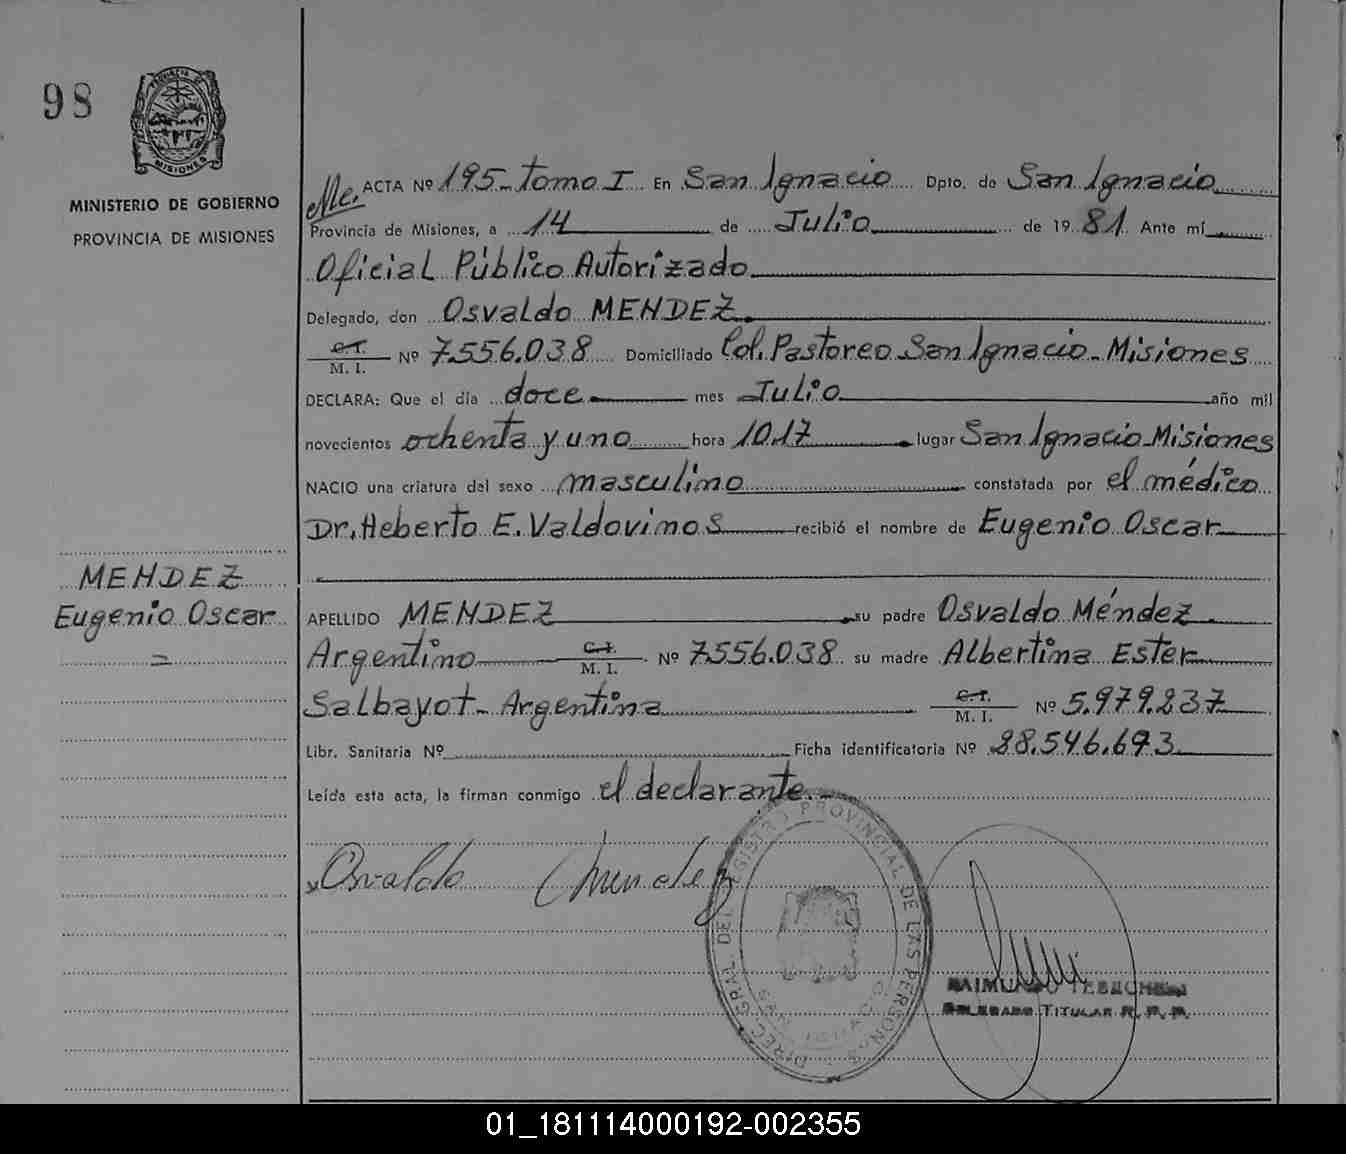 98
PROVINCIA DE
MISIONES
MINISTERIO DE GOBIERNO
PROVINCIA DE MISIONES
MENDEZ
Eugenio Oscar
=
Me.
ACTA Nº 195- Tomo I En San Ignacio Dpto. de San Ignacio
Provincia de Misiones, a 14 de Julio de 1981. Ante mí
Oficial Público Autorizado
Delegado, don Osvaldo MENDEZ.
C.I.
M. I. Nº 7.556.038 Domiciliado Col. Pastoreo San Ignacio - Misiones
DECLARA: Que el día doce mes Julio año mil
novecientos ochenta y uno hora 10.17 lugar San Ignacio Misiones
NACIO una criatura del sexo masculino constatada por el médico
Dr. Heberto E. Valdovinos recibió el nombre de Eugenio Oscar
APELLIDO MENDEZ su padre Osvaldo Méndez
Argentino C.I.
M. I. Nº 7.556.038 su madre Albertina Ester
Salbayot - Argentina C.I.
M. I. Nº 5.979.237
Libr. Sanitaria Nº Ficha identificatoria Nº 28.546.693
Leída esta acta, la firman conmigo el declarante.-
Osvaldo Mendez
DIREC. GRAL. DEL REGISTRO PROVINCIAL DE LAS PERSONAS
SAN IGNACIO
DELEGADO TITULAR R. P. P.
01_181114000192-002355